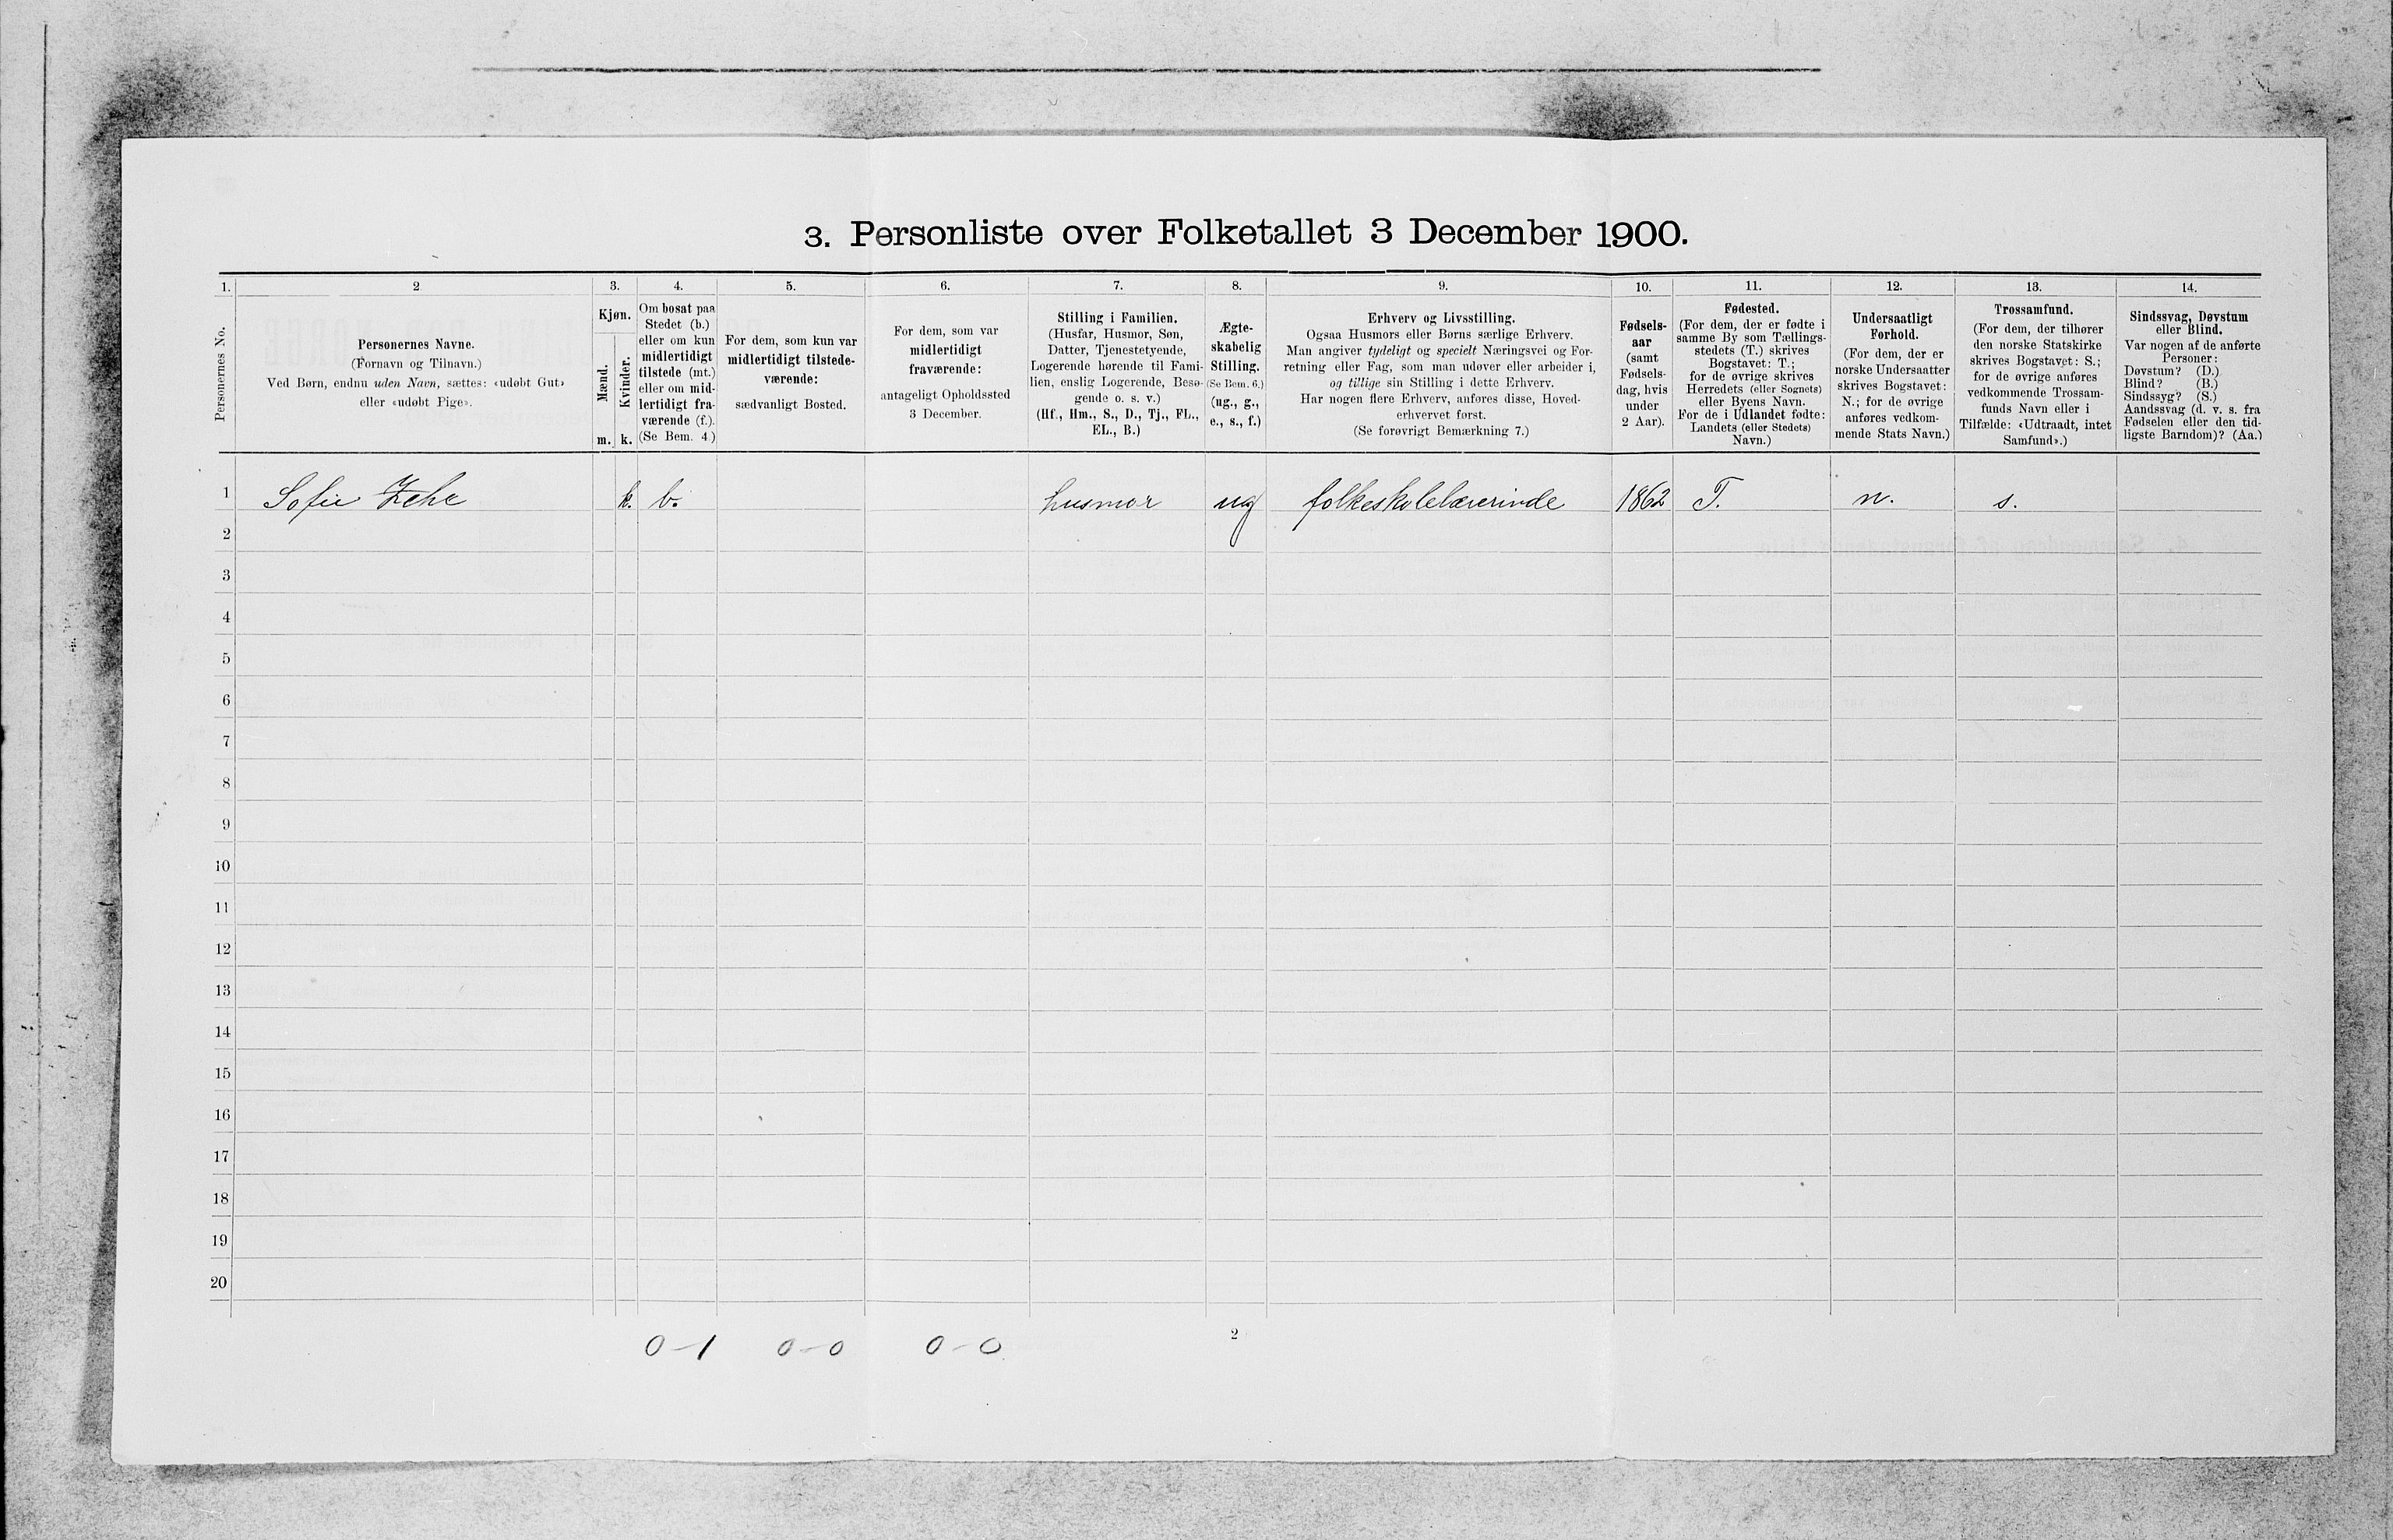 3. Personliste over Folketallet 3 December 1900.
1. 2 3. 4. 5. 6. 7. 8. 9. 10. 11. 12. 13. 14.
Personernes No.
Personernes Navne.
(Fornavn og Tilnavn.)
Ved Børn, endnu uden Navn, sættes: «udøbt Gut»
eller «udøbt Pige».
Kjøn.
Mænd.
Kvinder.
m. k.
Om bosat paa
Stedet (b.)
eller om kun
midlertidigt
tilstede (mt.)
eller om mid-
lertidigt fra-
værende (f.).
(Se Bem. 4.)
For dem, som kun var
midlertidigt tilstede-
værende:
sædvanligt Bosted.
For dem, som var
midlertidigt
fraværende:
antageligt Opholdssted
3 December.
Stilling i Familien.
(Husfar, Husmor, Søn,
Datter, Tjenestetyende,
Logerende hørende til Fami-
lien, enslig Logerende, Besø-
gende o. s. v.)
(Hf., Hm., S., D., Tj., FL.,
EL., B.)
Ægte-
skabelig
Stilling.
(Se Bem. 6.)
(ug., g.,
e., s., f.)
Erhverv og Livsstilling.
Ogsaa Husmors eller Børns særlige Erhverv.
Man angiver tydeligt og specielt Næringsvei og For-
retning eller Fag, som man udøver eller arbeider i,
og tillige sin Stilling i dette Erhverv.
Har nogen flere Erhverv, anføres disse, Hoved-
erhvervet først.
(Se forøvrigt Bemærkning 7.)
Fødsels-
aar
(samt
Fødsels-
dag, hvis
under
2 Aar).
Fødested.
(For dem, der er fødte i
samme By som Tællings-
stedets (T.) skrives
Bogstavet: T.;
for de øvrige skrives
Herredets (eller Sognets)
eller Byens Navn.
For de i Udlandet fødte:
Landets (eller Stedets)
Navn.)
Undersaatligt
Forhold.
(For dem, der er
norske Undersaatter
skrives Bogstavet:
N.; for de øvrige
anføres vedkom-
mende Stats Navn.)
Trossamfund.
(For dem, der tilhører
den norske Statskirke
skrives Bogstavet: S.;
for de øvrige anføres
vedkommende Trossam-
funds Navn eller i
Tilfælde: «Udtraadt, intet
Samfund».)
Sindssvag, Døvstum
eller Blind.
Var nogen af de anførte
Personer:
Døvstum? (D.)
Blind? (B.)
Sindssyg? (S.)
Aandssvag (d. v. s. fra
Fødselen eller den tid-
ligste Barndom)? (Aa.)
1 Sofie k. b. husmor ug folkeskolelærerinde 1862 T. n. s.
2
3
4
5
6
7
8
9
10
11
12
13
14
15
16
17
18
19
20
0-1 0-0 0-0
2